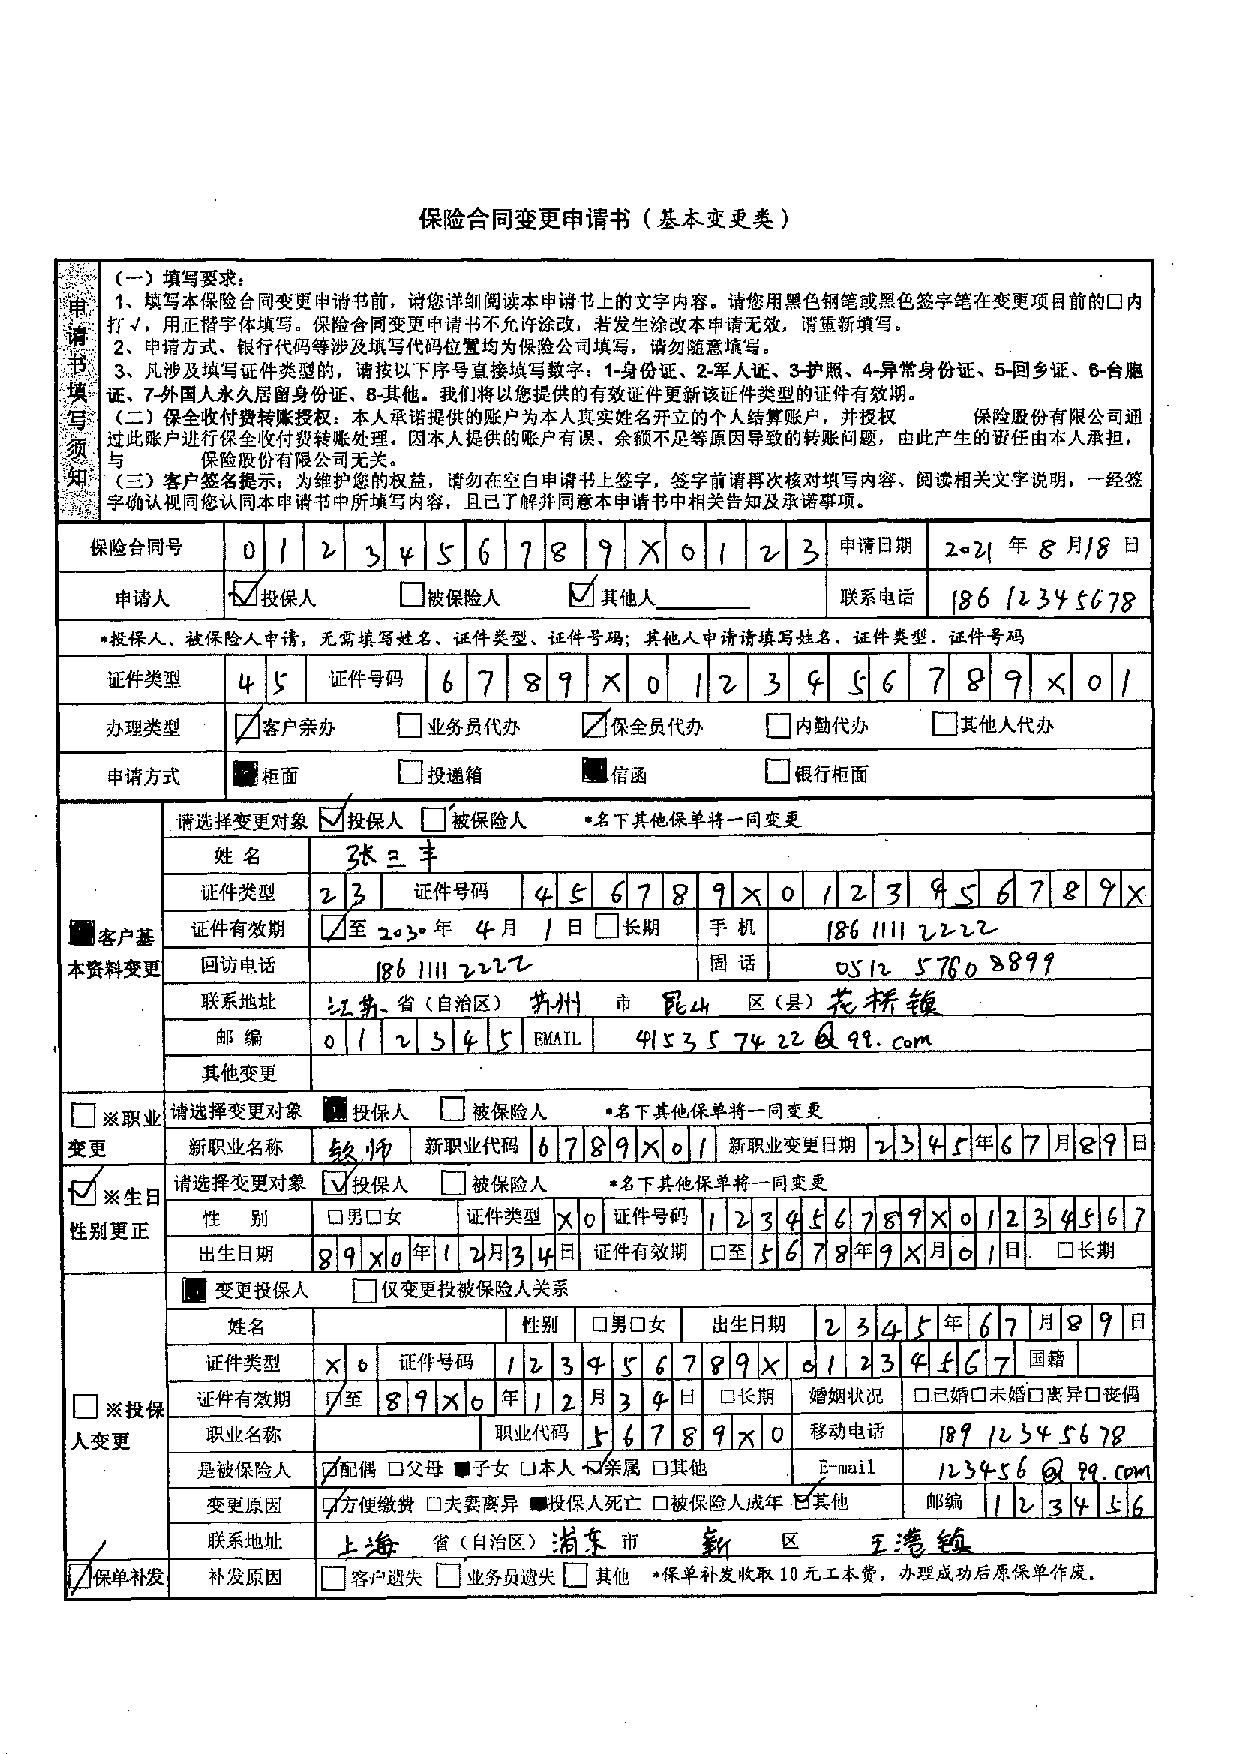 保险合同变更申请书（基本变更类）
申请书填写须知
（一）填写要求：
1、填写本保险合同变更申请书前，请您详细阅读本申请书上的文字内容。请您用黑色钢笔或黑色签字笔在变更项目前的□内
打√，用正楷字体填写。保险合同变更申请书不允许涂改，若发生涂改本申请无效，请重新填写。
2、申请方式、银行代码等涉及填写代码位置均为保险公司填写，请勿随意填写。
3、凡涉及填写证件类型的，请按以下序号直接填写数字：1-身份证、2-军人证、3-护照、4-异常身份证、5-回乡证、6-台胞
证、7-外国人永久居留身份证、8-其他。我们将以您提供的有效证件更新该证件类型的证件有效期。
（二）保全收付费转账授权：本人承诺提供的账户为本人真实姓名开立的个人结算账户，并授权 保险股份有限公司通
过此账户进行保全收付费转账处理。因本人提供的账户有误、余额不足等原因导致的转账问题，由此产生的责任由本人承担，
与 保险股份有限公司无关。
（三）客户签名提示：为维护您的权益，请勿在空白申请书上签字，签字前请再次核对填写内容、阅读相关文字说明，一经签
字确认视同您认同本申请书中所填写内容，且已了解并同意本申请书中相关告知及承诺事项。
保险合同号 0 1 2 3 4 5 6 7 8 9 X 0 1 2 3 申请日期 2021 年 8 月 18 日
申请人 ☑投保人 □被保险人 ☑其他人 联系电话 186 1234 5678
*投保人、被保险人申请，无需填写姓名、证件类型、证件号码；其他人申请请填写姓名、证件类型、证件号码
证件类型 4 5 证件号码 6 7 8 9 X 0 1 2 3 4 5 6 7 8 9 X 0 1
办理类型 ☑客户亲办 □业务员代办 ☑保全员代办 □内勤代办 □其他人代办
申请方式 ■柜面 □投递箱 ■信函 □银行柜面
■客户基本资料变更
请选择变更对象 ☑投保人 □被保险人 *名下其他保单将一同变更
姓名 张三丰
证件类型 2 3 证件号码 4 5 6 7 8 9 X 0 1 2 3 4 5 6 7 8 9 X
证件有效期 ☑至 2030 年 4 月 1 日 □长期 手机 186 1111 2222
回访电话 186 1111 2222 固话 0512 5760 8899
联系地址 江苏 省（自治区） 苏州 市 昆山 区（县） 花桥镇
邮编 0 1 2 3 4 5 EMAIL 415357422@qq.com
其他变更
□※职业变更
请选择变更对象 ■投保人 □被保险人 *名下其他保单将一同变更
新职业名称 教师 新职业代码 6 7 8 9 X 0 1 新职业变更日期 2 3 4 5 年 6 7 月 8 9 日
☑※生日性别更正
请选择变更对象 ☑投保人 □被保险人 *名下其他保单将一同变更
性别 □男□女 证件类型 X 0 证件号码 1 2 3 4 5 6 7 8 9 X 0 1 2 3 4 5 6 7
出生日期 8 9 X 0 年 1 2 月 3 4 日 证件有效期 □至 5 6 7 8 年 9 X 月 0 1 日 □长期
□※投保人变更
■变更投保人 □仅变更投被保险人关系
姓名 性别 □男□女 出生日期 2 3 4 5 年 6 7 月 8 9 日
证件类型 X 0 证件号码 1 2 3 4 5 6 7 8 9 X 0 1 2 3 4 5 6 7 国籍
证件有效期 ☑至 8 9 X 0 年 1 2 月 3 4 日 □长期 婚姻状况 □已婚□未婚□离异□丧偶
职业名称 职业代码 5 6 7 8 9 X 0 移动电话 189 1234 5678
是被保险人 ☑配偶 □父母 ■子女 □本人 ☑亲属 □其他 E-mail 123456@qq.com
变更原因 ☑方便缴费 □夫妻离异 ■投保人死亡 □被保险人成年 ☑其他 邮编 1 2 3 4 5 6
联系地址 上海 省（自治区） 浦东 市 新 区 王港镇
☑保单补发 补发原因 □客户遗失 □业务员遗失 □其他 *保单补发收取10元工本费，办理成功后原保单作废。